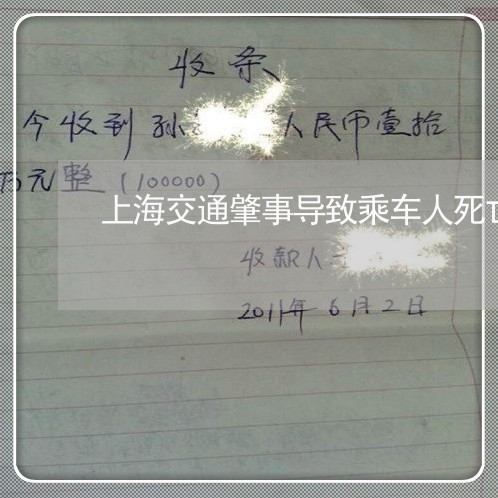 收条
今收到孙 人民币壹拾
万元整（100000）
上海交通肇事导致乘车人死亡
收款人
2011年6月2日